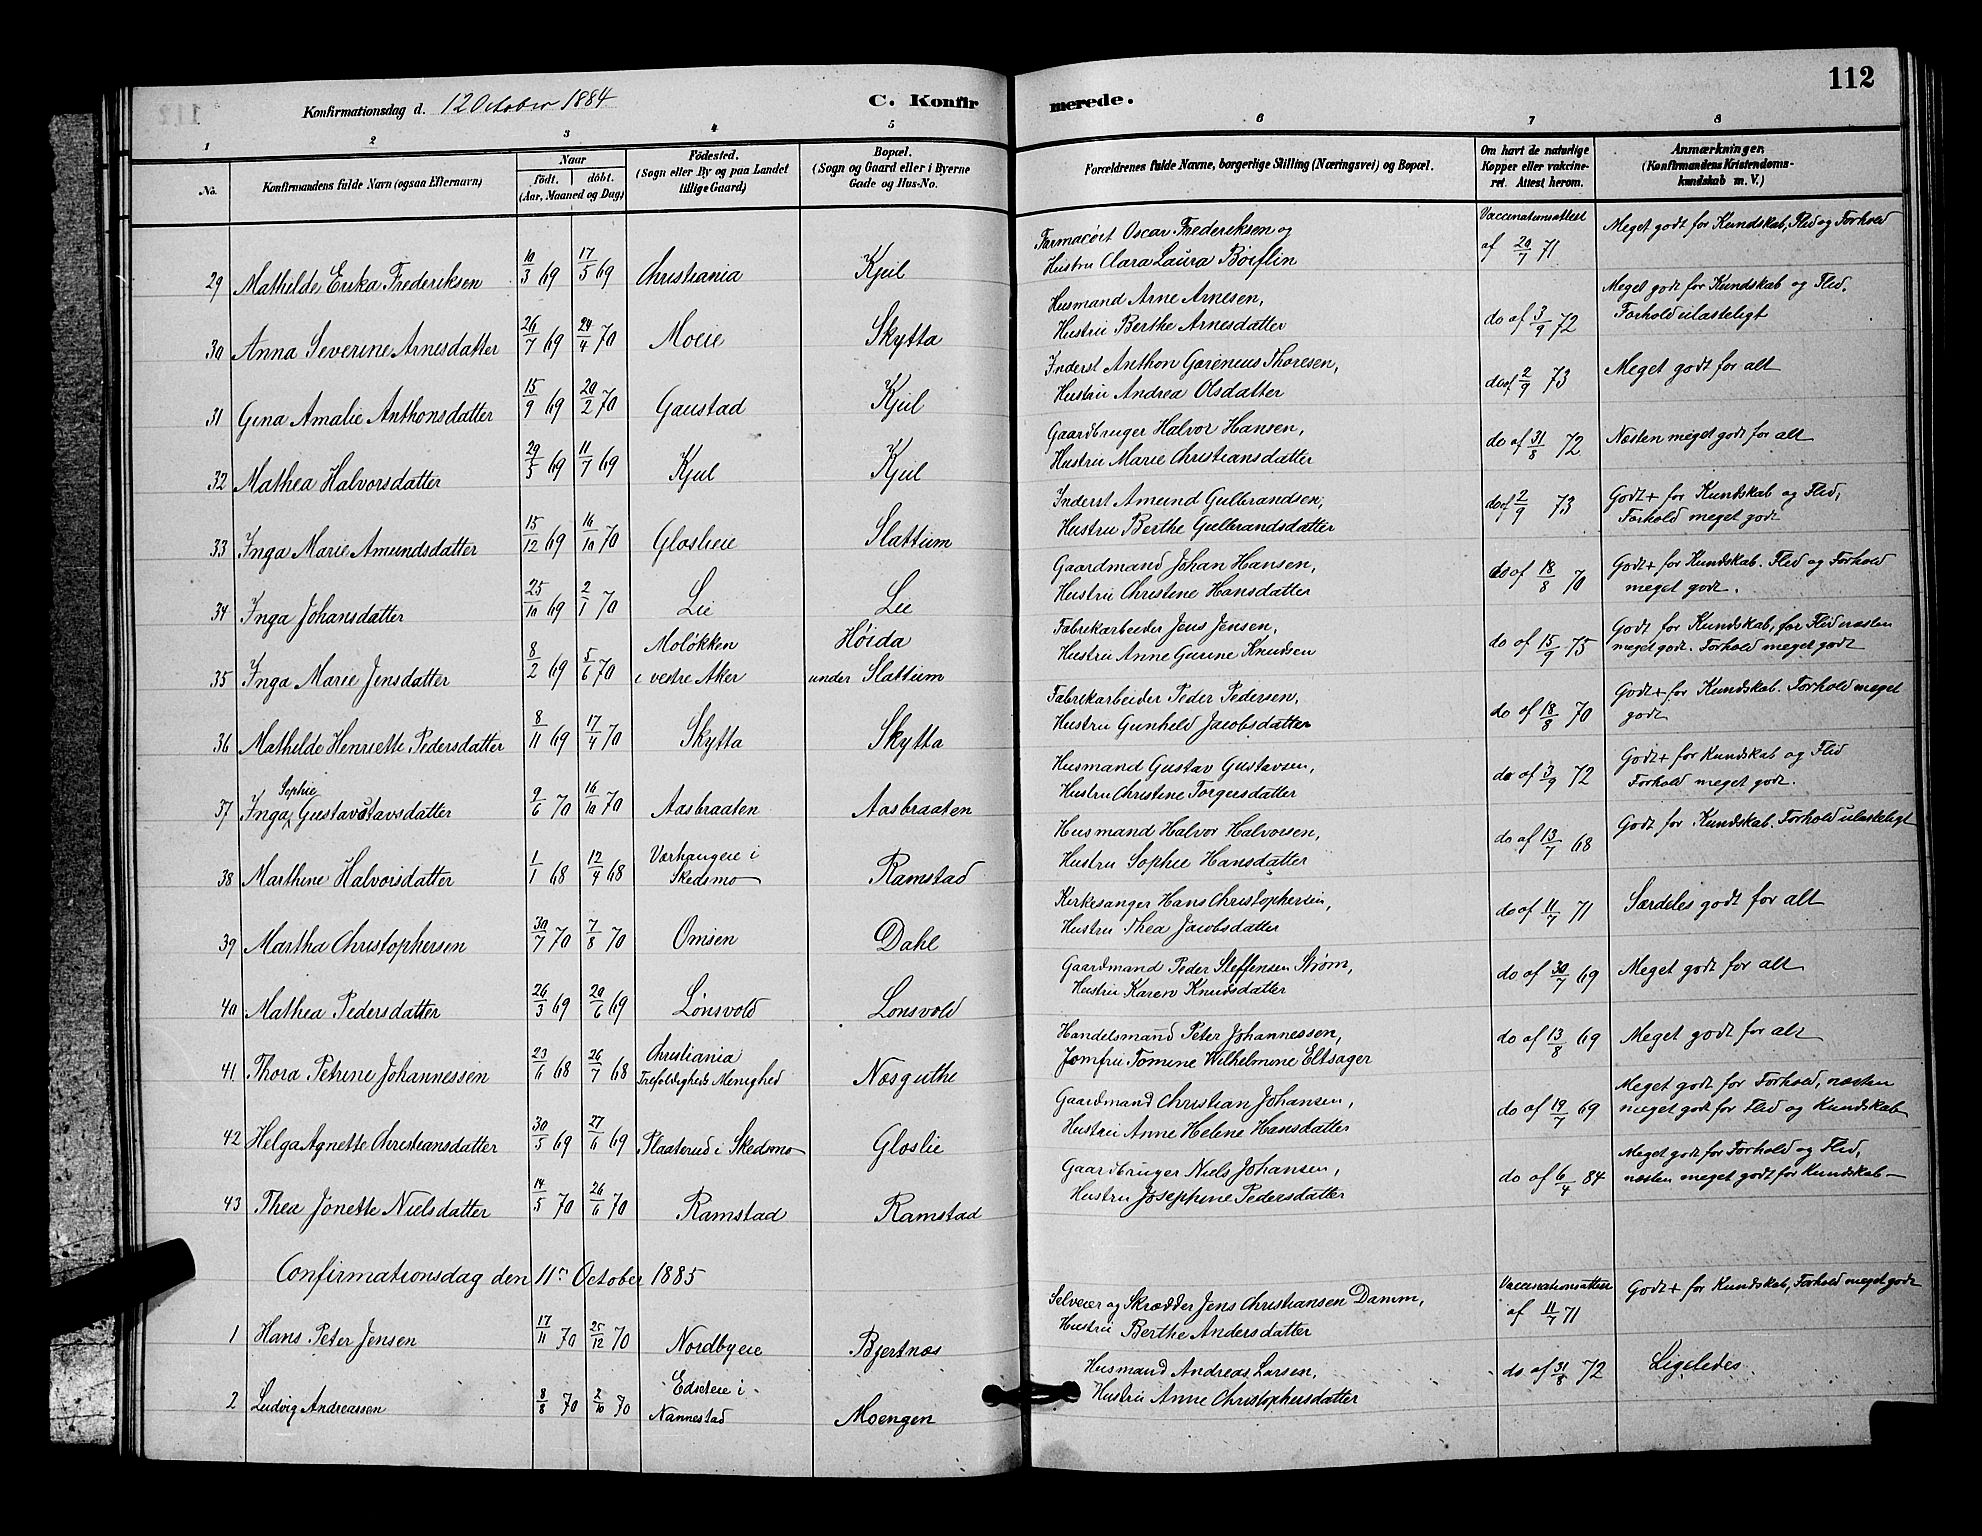 112
Konfirmationsdag d. 12 October 1884 C. Konfirmerede.
1 2 3 4 5 6 7 8
No. Konfirmandens fulde Navn (ogsaa Efternavn) Naar født. døbt. (Aar, Maaned og Dag) Fødested. (Sogn eller By og paa Landet tillige Gaard) Bopæl. (Sogn og Gaard eller i Byerne Gade og Hus-No. Forældrenes fulde Navne, borgerlige Stilling (Næringsvei) og Bopæl. Om havt de naturlige Kopper eller vakcineret. Attest herom. Anmærkninger. (Konfirmandens Kristendomskundskab m. V.)
29 Mathilde Erika Frederiksen 10/3 69 17/5 69 Christiania Kjul Farmaceut Oscar Frederiksen og Hustru Clara Laura Vaccinationsattest af 20/7 71 Meget godt for Kundskab, Flid og Forhold
30 Anna Severine Arnesdatter 26/7 69 24/4 70 Moeie Skytta Husmand Arne Arnesen, Hustru Berthe Arnesdatter do af 3/9 72 Meget godt for Kundskab og Flid, Forhold ulasteligt
31 Gina Amalie Anthonsdatter 15/9 69 20/2 70 Gaustad Kjul Inderst Anthon Gorenius Thoresen, Hustru Andrea Olsdatter do af 2/9 73 Meget godt for alt
32 Mathea Halvorsdatter 29/5 69 11/7 69 Kjul Kjul Gaardbruger Halvor Hansen, Hustru Marie Christiansdatter do af 31/8 72 Næsten meget godt for alt
33 Inga Marie Amundsdatter 15/12 69 16/10 70 Glaslieie Slattum Inderst Amund Gulbrandsen, Hustru Berthe Gulbrandsdatter do af 2/9 73 Godt+ for Kundskab og Flid, Forhold meget godt
34 Inga Johansdatter 25/10 69 2/1 70 Lie Lie Gaardmand Johan Hansen, Hustru Christine Hansdatter do af 18/8 70 Godt+ for Kundskab. Flid og Forhold meget godt.
35 Inga Marie Jensdatter 8/2 69 5/6 70 Moløkken i vestre Aker Høida under Slattum Fabrikarbeider Jens Jensen, Hustru Anne Gurine Knudsen do af 15/9 75 Godt for Kundskab, for Flid næsten meget godt. Forhold meget godt
36 Mathilde Henriette Pedersdatter 8/11 69 17/4 70 Skytta Skytta Fabrikarbeider Peder Pedersen, Hustru Gunhild Jacobsdatter do af 18/8 70 Godt+ for Kundskab. Forhold meget godt
37 Inga Sophie Gustavstavsdatter 9/6 70 16/10 70 Aasbraaten Aasbraaten Husmand Gustav Gustavsen, Hustru Christine Torgersdatter do af 3/9 72 Godt+ for Kundskab og Flid Forhold meget godt.
38 Marthine Halvorsdatter 1/1 68 12/4 68 Vorhaugeie i Skedsmo Ramstad Husmand Halvor Halvorsen, Hustru Sophie Hansdatter do af 13/7 68 Godt for Kundskab. Forhold ulasteligt
39 Martha Christophersen 30/7 70 7/8 70 Omsen Dahl Kirkesanger Hans Christophersen, Hustru Thea Jacobsdatter do af 11/7 71 Særdeles godt for alt
40 Mathea Pedersdatter 26/3 69 20/6 69 Lønsvold Lonsvold Gaardmand Peder Steffensen Strøm, Hustru Karen Knudsdatter do af 30/7 69 Meget godt for alt
41 Thora Petrine Johannessen 23/6 68 26/7 68 Christiania Trefoldigheds Menighed Næsguthe Handelsmand Peter Johannessen, Jomfru Tomine Wilhelmine Eltsager do af 13/8 69 Meget godt for alt
42 Helga Agnette Christiansdatter 30/5 69 27/6 69 Plaaterud i Skedsmo Gloslie Gaardmand Christian Johansen, Hustru Anne Helene Hansdatter do af 19/7 69 Meget godt for Forhold, næsten meget godt for Flid og Kundskab
43 Thea Jonette Nielsdatter 14/5 70 26/6 70 Ramstad Ramstad Gaardbruger Niels Johansen, Hustru Josephine Pedersdatter do af 6/4 84 Meget godt for Forhold og Flid, næsten meget godt for Kundskab
Confirmationsdag den 11te October 1885
1 Hans Peter Jensen 17/11 70 25/12 70 Nordbyeie Bjertnæs Selveier og Skrædder Jens Christiansen Damm, Hustru Berthe Andersdatter Vaccinationsattest af 11/7 71 Godt+ for Kundskab, Forhold meget godt
2 Ludvig Andreassen 8/8 70 2/10 70 Nannestad Moengen Husmand Andreas Larsen, Hustru Anne Christophersdatter do af 31/8 72 Ligeledes